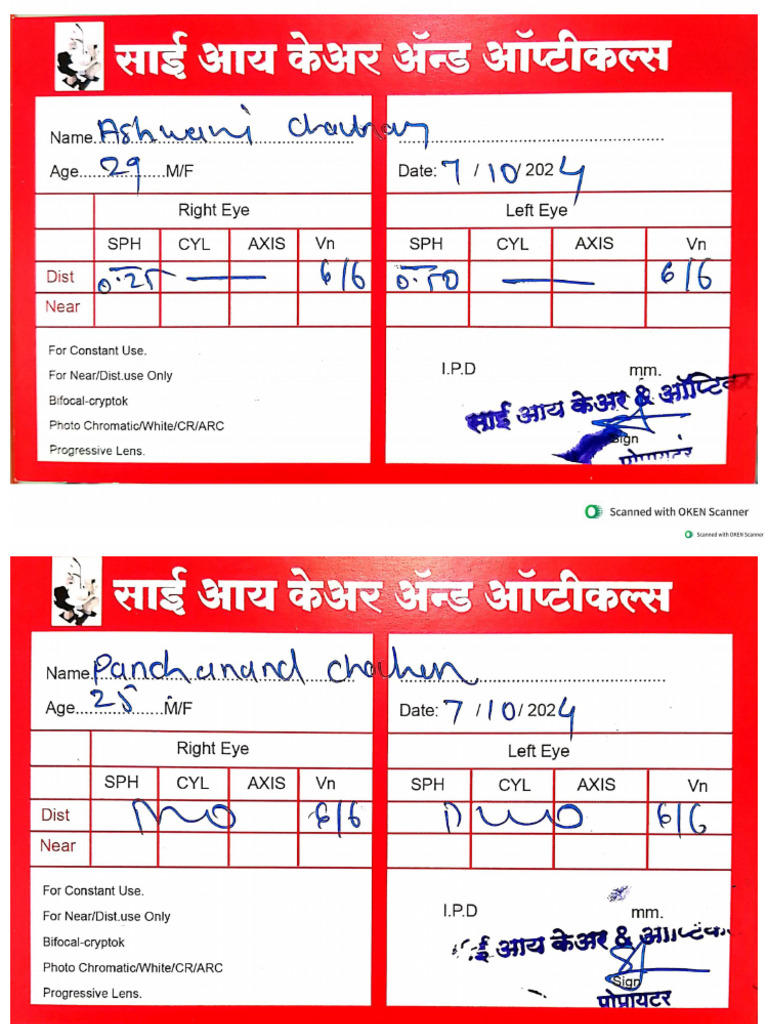 साई आय केअर ॲन्ड ऑप्टीकल्स
Name Ashwani Chauhan
Age 29 M/F Date: 7 / 10 / 2024
Right Eye Left Eye
SPH CYL AXIS Vn SPH CYL AXIS Vn
Dist -0.25 — 6/6 -0.50 — 6/6
Near
For Constant Use.
For Near/Dist.use Only
Bifocal-cryptok
Photo Chromatic/White/CR/ARC
Progressive Lens.
I.P.D mm.
साई आय केअर & ऑप्टिकल
Sign
प्रोप्रायटर
Scanned with OKEN Scanner
Scanned with OKEN Scanner
साई आय केअर ॲन्ड ऑप्टीकल्स
Name Panchanand Chauhan
Age 25 M/F Date: 7 / 10 / 2024
Right Eye Left Eye
SPH CYL AXIS Vn SPH CYL AXIS Vn
Dist 6/6 6/6
Near
For Constant Use.
For Near/Dist.use Only
Bifocal-cryptok
Photo Chromatic/White/CR/ARC
Progressive Lens.
I.P.D mm.
आय केअर & ऑप्टिकल
Sign
प्रोप्रायटर